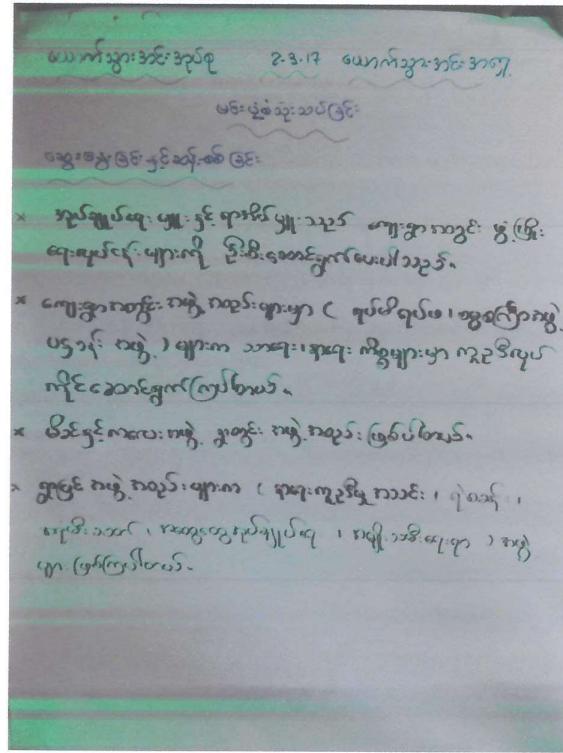 ယောက်သွားအင်းအုပ်စု ၃-၃-၁၇ ယောက်သွားအင်းအရှေ့
ပုံစံသုံးသပ်ခြင်း
ဆွေးနွေးခြင်းနှင့်ဆန်းစစ်ခြင်း
× အုပ်ချုပ်ရေးမှူးနှင့် ရာအိမ်မှူးသည် ကျေးရွာအတွင်း ဖွံ့ဖြိုး
ရေးလုပ်ငန်းများကို ဦးစီးဆောင်ရွက်ပေးပါသည်။
× ကျေးရွာအတွင်း အဖွဲ့အစည်းများမှာ ( ရပ်မိရပ်ဖ ၊ ဓမ္မစကြာအဖွဲ့
ပဋ္ဌာန်း အဖွဲ့ ) များက သာရေး၊နာရေး ကိစ္စများမှာ ကူညီလုပ်
ကိုင်ဆောင်ရွက်ကြပါတယ်။
× မိခင်နှင့်ကလေးအဖွဲ့ ရွာတွင်း အဖွဲ့အစည်း ဖြစ်ပါတယ်။
× ရွာပြင် အဖွဲ့အစည်းများက ( နာရေးကူညီမှု အသင်း ၊ ရဲစခန်း ၊
မီးသတ် ၊ အထွေထွေအုပ်ချုပ်ရေး ၊ အမျိုးသမီးရေးရာ ) အဖွဲ့
များ ဖြစ်ကြပါတယ်။